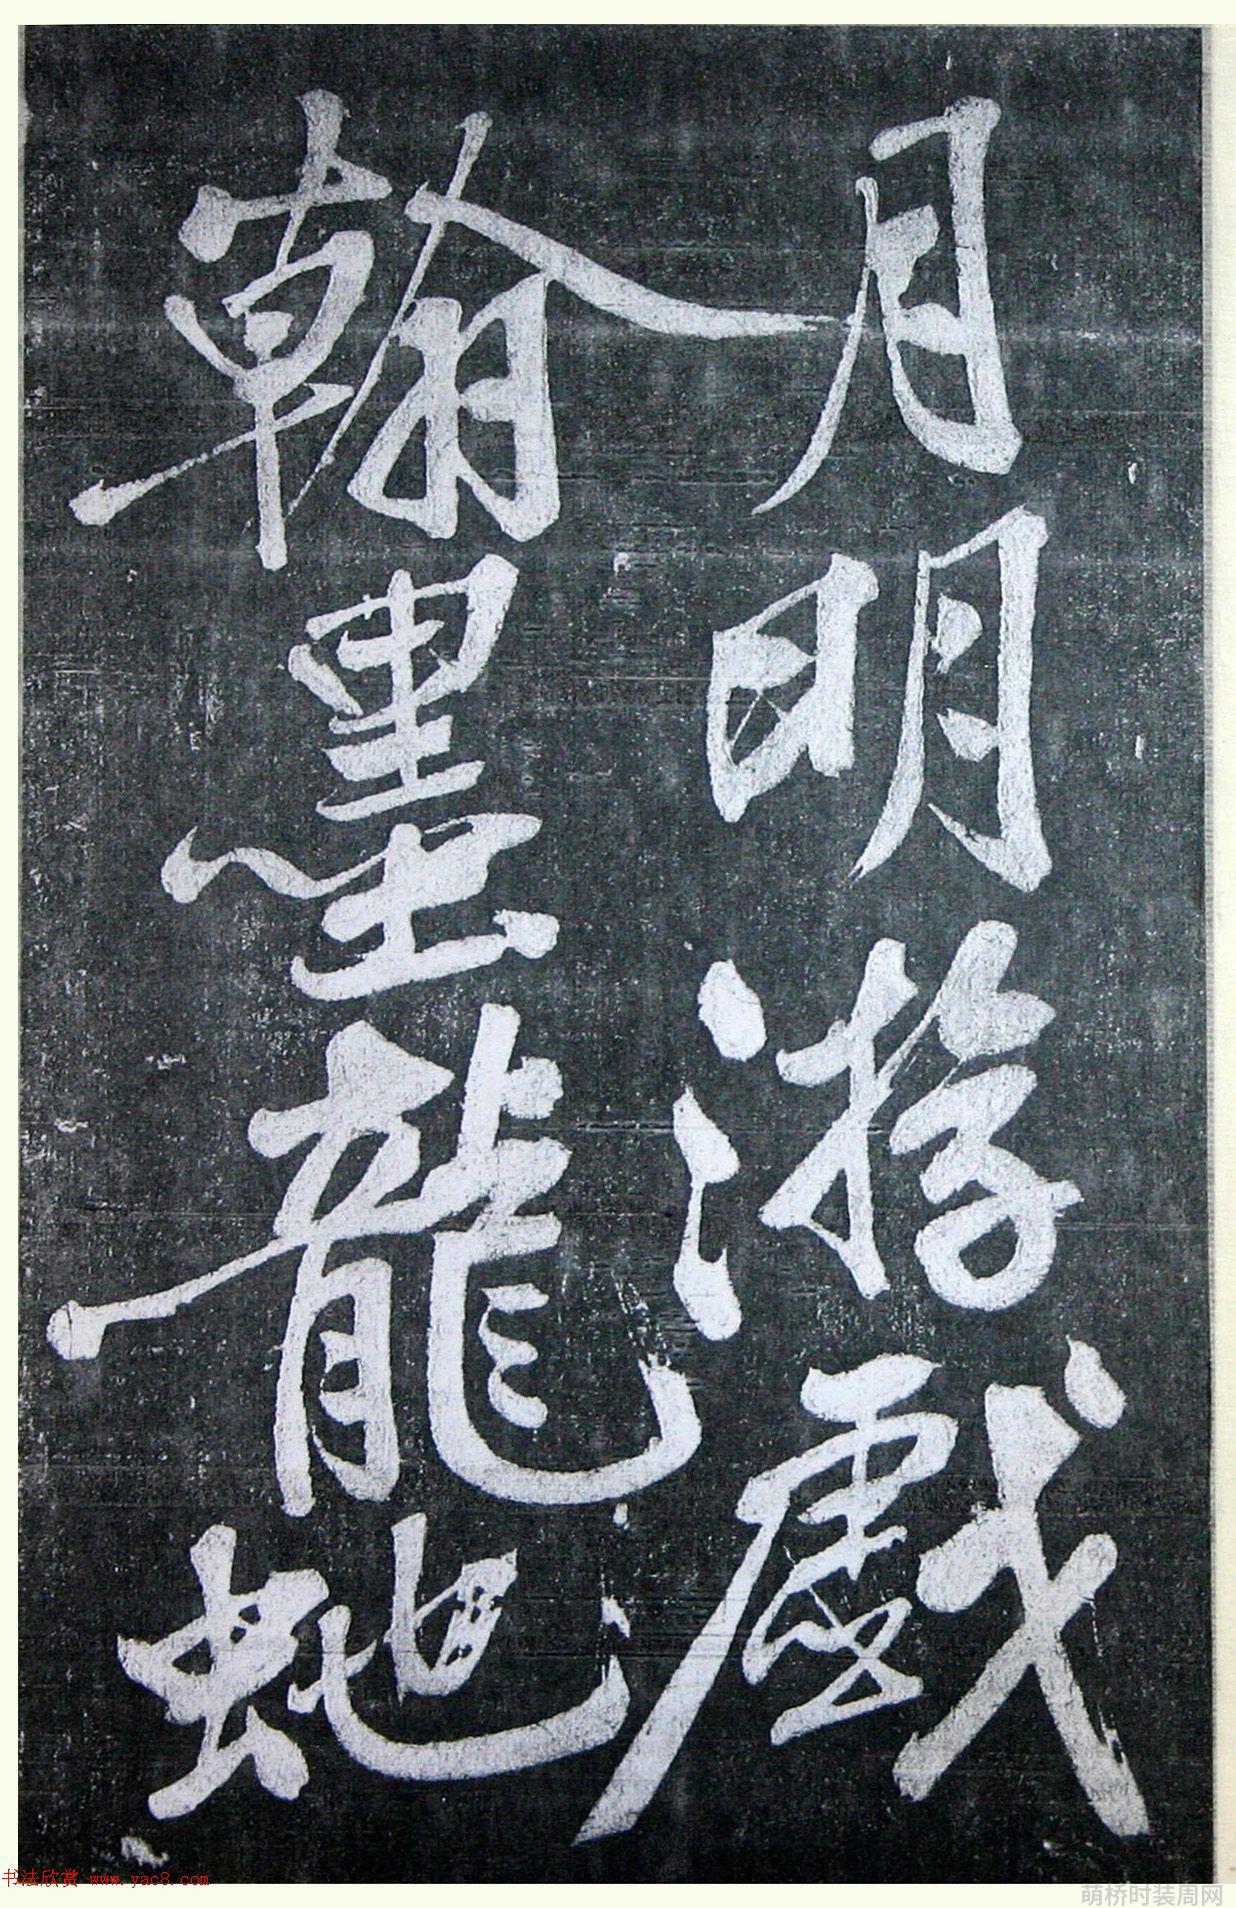 月明游戲
翰墨龍蛇
书法欣赏 www.yac8.com
萌桥时装周网